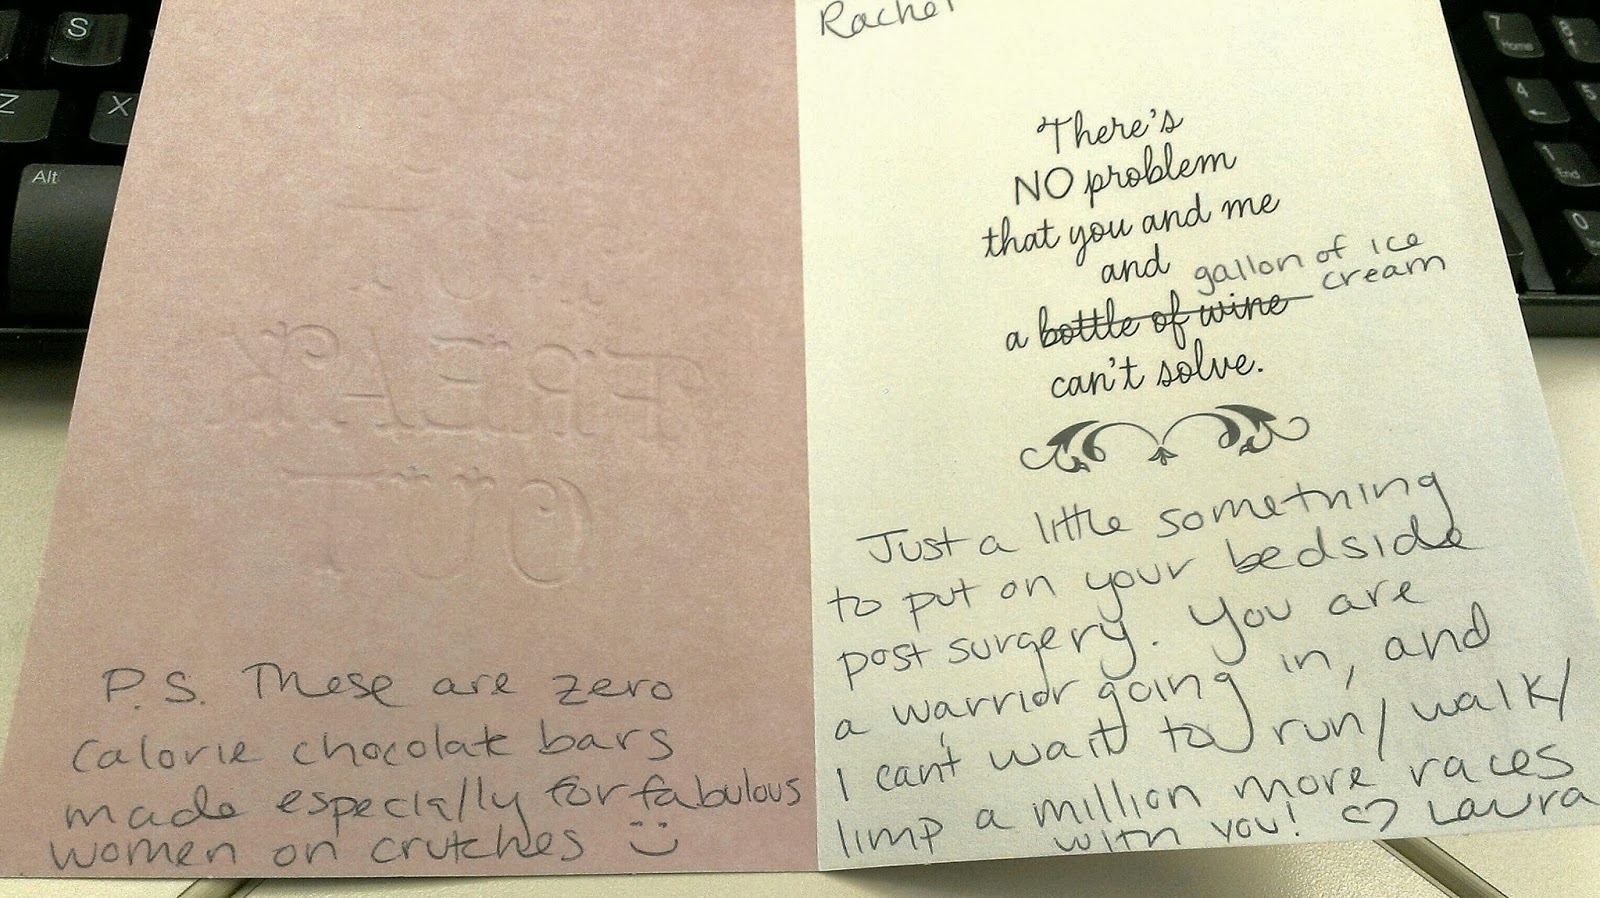 S
Z
X
Alt
FREAK
OUT
P.S. These are zero
calorie chocolate bars
made especially for fabulous
women on crutches
Rachel
There's
NO problem
that you and me
and
gallon of ice
cream
a bottle of wine
can't solve.
Just a little something
to put on your bedside
post surgery. You are
a warrior going in, and
I can't wait to run/walk/
limp a million more races
with you! ♡ Laura
7
Home
4
5
1
End
0